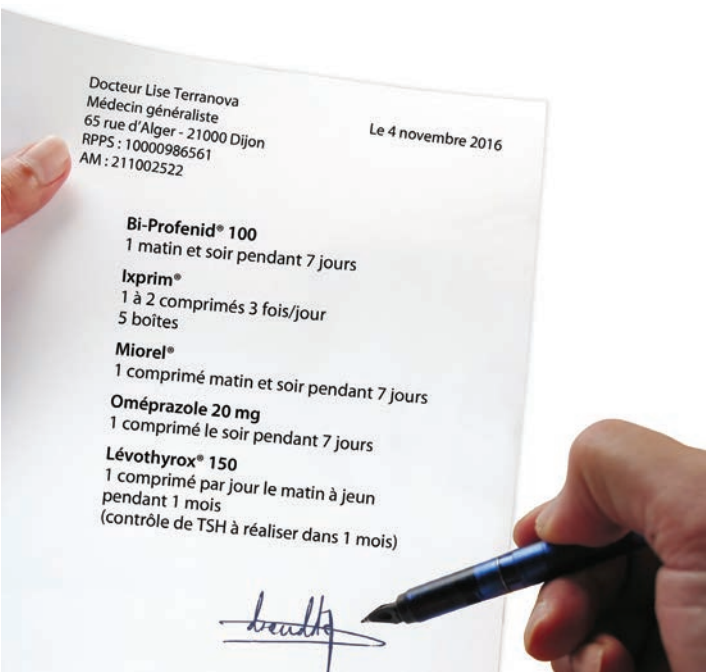 Docteur Lise Terranova
Médecin généraliste
65 rue d'Alger - 21000 Dijon
RPPS : 10000986561
AM : 211002522
Le 4 novembre 2016
Bi-Profenid® 100
1 matin et soir pendant 7 jours
Ixprim®
1 à 2 comprimés 3 fois/jour
5 boîtes
Miorel®
1 comprimé matin et soir pendant 7 jours
Oméprazole 20 mg
1 comprimé le soir pendant 7 jours
Lévothyrox® 150
1 comprimé par jour le matin à jeun
pendant 1 mois
(contrôle de TSH à réaliser dans 1 mois)